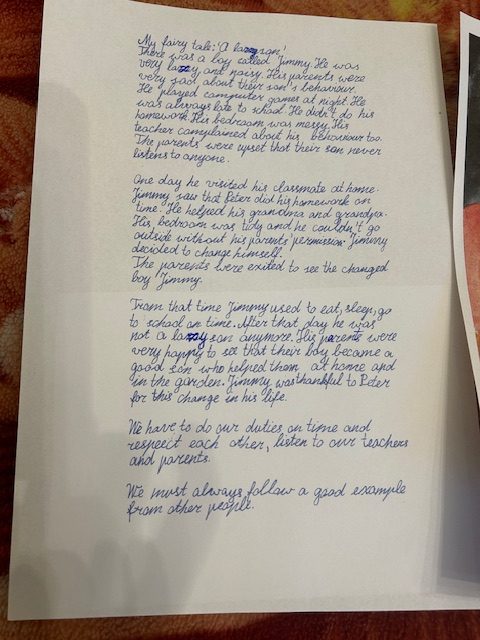 My fairy tale: 'A lazy son'
There was a boy called Jimmy. He was
very lazy and noisy. His parents were
very sad about their son's behaviour.
He played computer games at night. He
was always late to school. He didn't do his
homework. His bedroom was messy. His
teacher complained about his behaviour too.
The parents were upset that their son never
listens to anyone.
One day he visited his classmate at home.
Jimmy saw that Peter did his homework on
time. He helped his grandma and grandpa.
His bedroom was tidy and he couldn't go
outside without his parents' permission. Jimmy
decided to change himself.
The parents were exited to see the changed
boy Jimmy.
From that time Jimmy used to eat, sleep, go
to school on time. After that day he was
not a lazy son anymore. His parents were
very happy to see that their boy became a
good son who helped them at home and
in the garden. Jimmy was thankful to Peter
for this change in his life.
We have to do our duties on time and
respect each other, listen to our teachers
and parents.
We must always follow a good example
from other people.